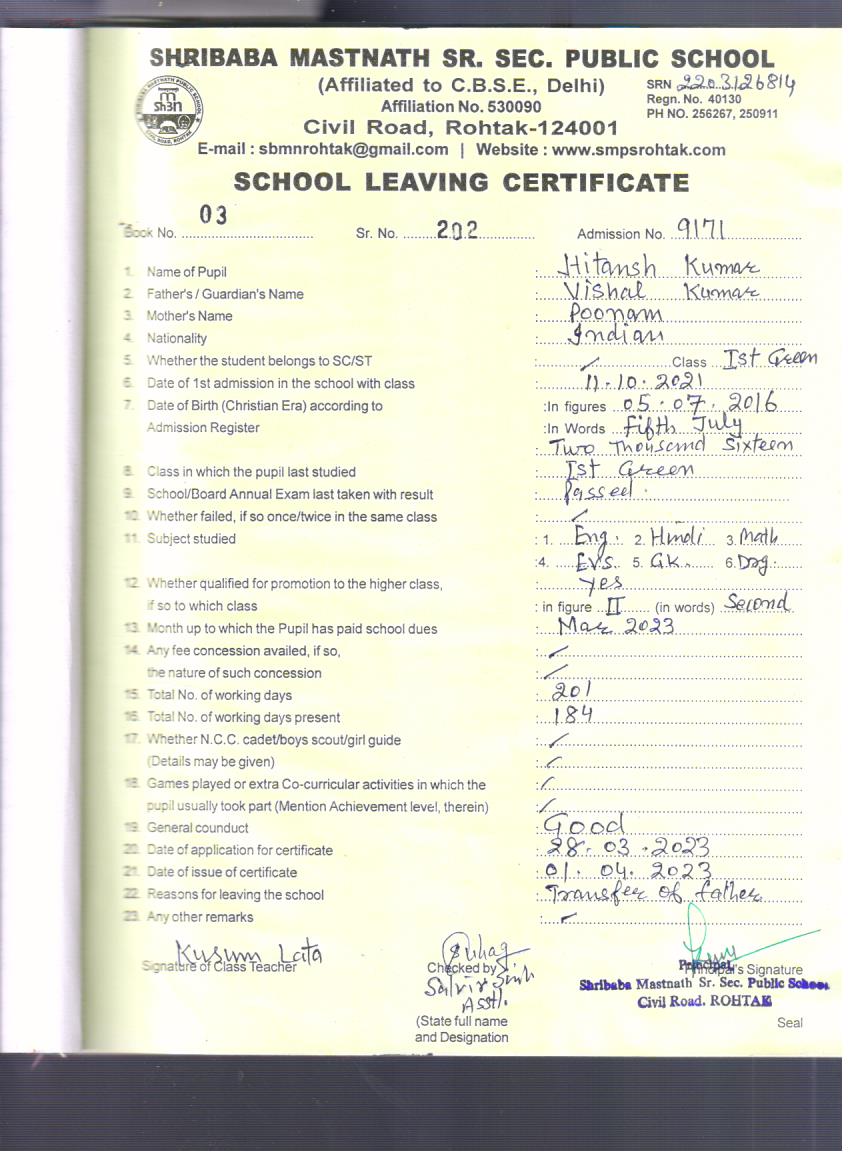 SHRIBABA MASTNATH SR. SEC. PUBLIC SCHOOL
(Affiliated to C.B.S.E., Delhi)
SRN 2203126814
Affiliation No. 530090
Regn. No. 40130
PH NO. 256267, 250911
Civil Road, Rohtak-124001
E-mail : sbmnrohtak@gmail.com | Website : www.smpsrohtak.com
SCHOOL LEAVING CERTIFICATE
Book No. 03 Sr. No. 202 Admission No. 9171
1. Name of Pupil : Hitansh Kumar
2. Father's / Guardian's Name : Vishal Kumar
3. Mother's Name : Poonam
4. Nationality : Indian
5. Whether the student belongs to SC/ST : Class Ist Green
6. Date of 1st admission in the school with class : 11.10.2021
7. Date of Birth (Christian Era) according to :In figures 05.07.2016
Admission Register :In Words Fifth July
: Two Thousand Sixteen
8. Class in which the pupil last studied : Ist Green
9. School/Board Annual Exam last taken with result : Passed.
10. Whether failed, if so once/twice in the same class :
11. Subject studied : 1. Eng. 2. Hindi 3. Math
:4. EVS. 5. GK. 6. Drg.
12. Whether qualified for promotion to the higher class, : yes
if so to which class : in figure II (in words) Second
13. Month up to which the Pupil has paid school dues : Mar 2023
14. Any fee concession availed, if so, :
the nature of such concession :
15. Total No. of working days : 201
16. Total No. of working days present : 184
17. Whether N.C.C. cadet/boys scout/girl guide :
(Details may be given) :
18. Games played or extra Co-curricular activities in which the :
pupil usually took part (Mention Achievement level, therein) :
19. General counduct : Good
20. Date of application for certificate : 28.03.2023
21. Date of issue of certificate : 01.04.2023
22. Reasons for leaving the school : Transfer of father
23. Any other remarks :
Kusum Lata
Signature of Class Teacher
Checked by
Asstt.
(State full name
and Designation
Principal
Principal's Signature
Shribaba Mastnath Sr. Sec. Public School
Civil Road. ROHTAK
Seal